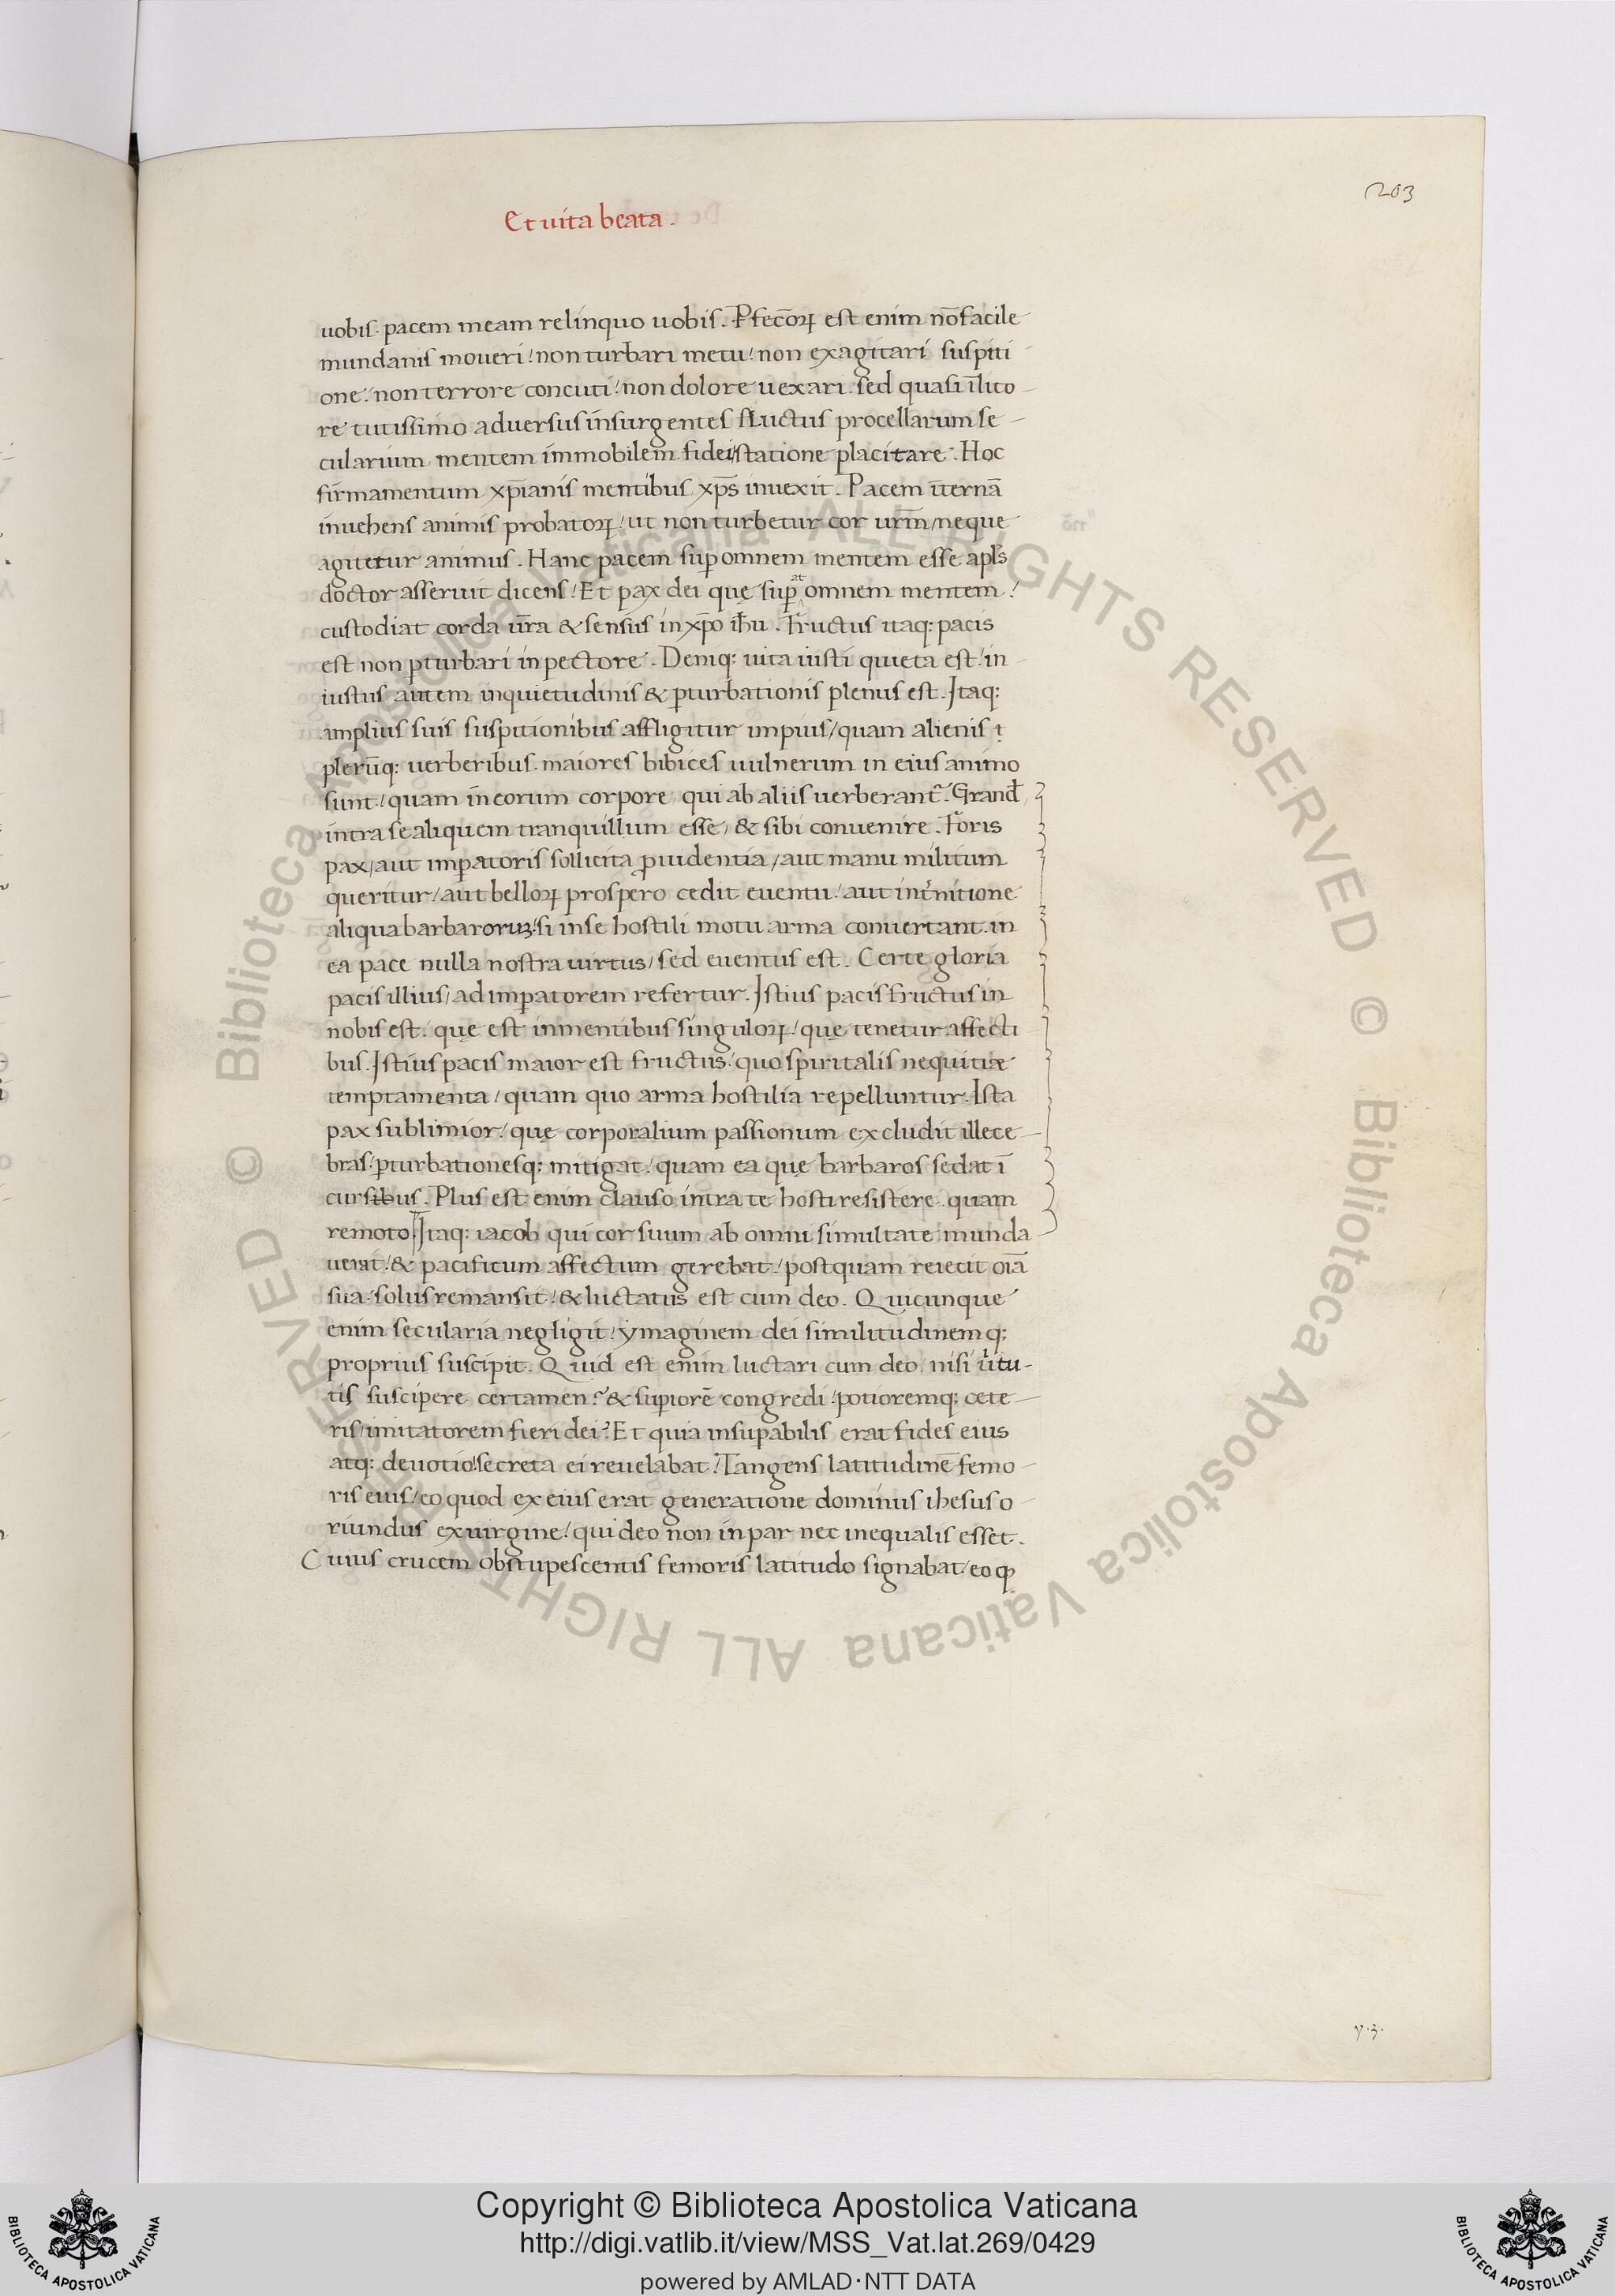 203
Et uita beata.
uobis. pacem meam relinquo uobis. Pfectoꝝ est enim nō facile
mundanis moueri / non turbari metu / non exagitari suspiti
one / non terrore concuti / non dolore uexari. sed quasi ī lito
re tutissimo aduersus insurgentes fluctus procellarum se
cularium mentem immobilem fidei statione placitare. Hoc
firmamentum xp̄ianis mentibus xp̄s inuexit. Pacem īternā
inuehens animis probatoꝝ / ut non turbetur cor ur̄m / neque
agitetur animus. Hanc pacem sup omnem mentem esse apl̄s
doctor asseruit dicens / Et pax dei quę sup at omnem mentem /
custodiat corda ūra & sensus in xp̄o ih̄u. Fructus itaq: pacis
est non ꝑturbari in pectore. Deniq: uita iusti quieta est / in
iustus autem inquietudinis & ꝑturbationis plenus est. Itaq:
amplius suis suspitionibus affligitur impius / quam alienis
plerūq: uerberibus. maiores bibices uulnerum in eius animo
sunt / quam in eorum corpore qui ab aliis uerberant̄. Grand
intra se aliquem tranquillum esse / & sibi conuenire. Foris
pax / aut impatoris sollicita ꝓuidentia / aut manu militum
queritur / aut belloꝝ prospero cedit euentu / aut int̄nitione
aliqua barbaroruꝫ / si in se hostili motu arma conuertant. in
ea pace nulla nostra uirtus / sed euentus est. Certe gloria
pacis illius / ad impatorem refertur. Istius pacis fructus in
nobis est. quę est in mentibus singuloꝝ / quę tenetur affecti
bus. Istius pacis maior est fructus / quo spiritalis nequitiæ
temptamenta / quam quo arma hostilia repelluntur. Ista
pax sublimior / quę corporalium passionum excludit illece
bras / ꝑturbationesq: mitigat / quam ea quę barbaros sedat ī
cursibus. Plus est enim clauso intra te hosti resistere quam
remoto. Itaq: iacob qui cor suum ab omni simultate munda
uerat / & pacificum affectum gerebat / postquam reiecit oīa
sua / solus remansit / & luctatus est cum deo. Quicunque
enim secularia negligit / ymaginem dei similitudinemq:
proprius suscipit. Quid est enim luctari cum deo / nisi ūtu-
tis suscipere certamen? & supiorē congredi / potioremq: cete
ris / imitatorem fieri dei? Et quia insupabilis erat fides eius
atq: deuotio / secreta ei reuelabat / Tangens latitudinē femo
ris eius / eo quod ex eius erat generatione dominus ihesus o
riundus ex uirgine / qui deo non inpar nec inequalis esset.
Cuius crucem obstupescentis femoris latitudo signabat / eo ꝙ
y.3.
Copyright © Biblioteca Apostolica Vaticana
http://digi.vatlib.it/view/MSS_Vat.lat.269/0429
powered by AMLAD·NTT DATA